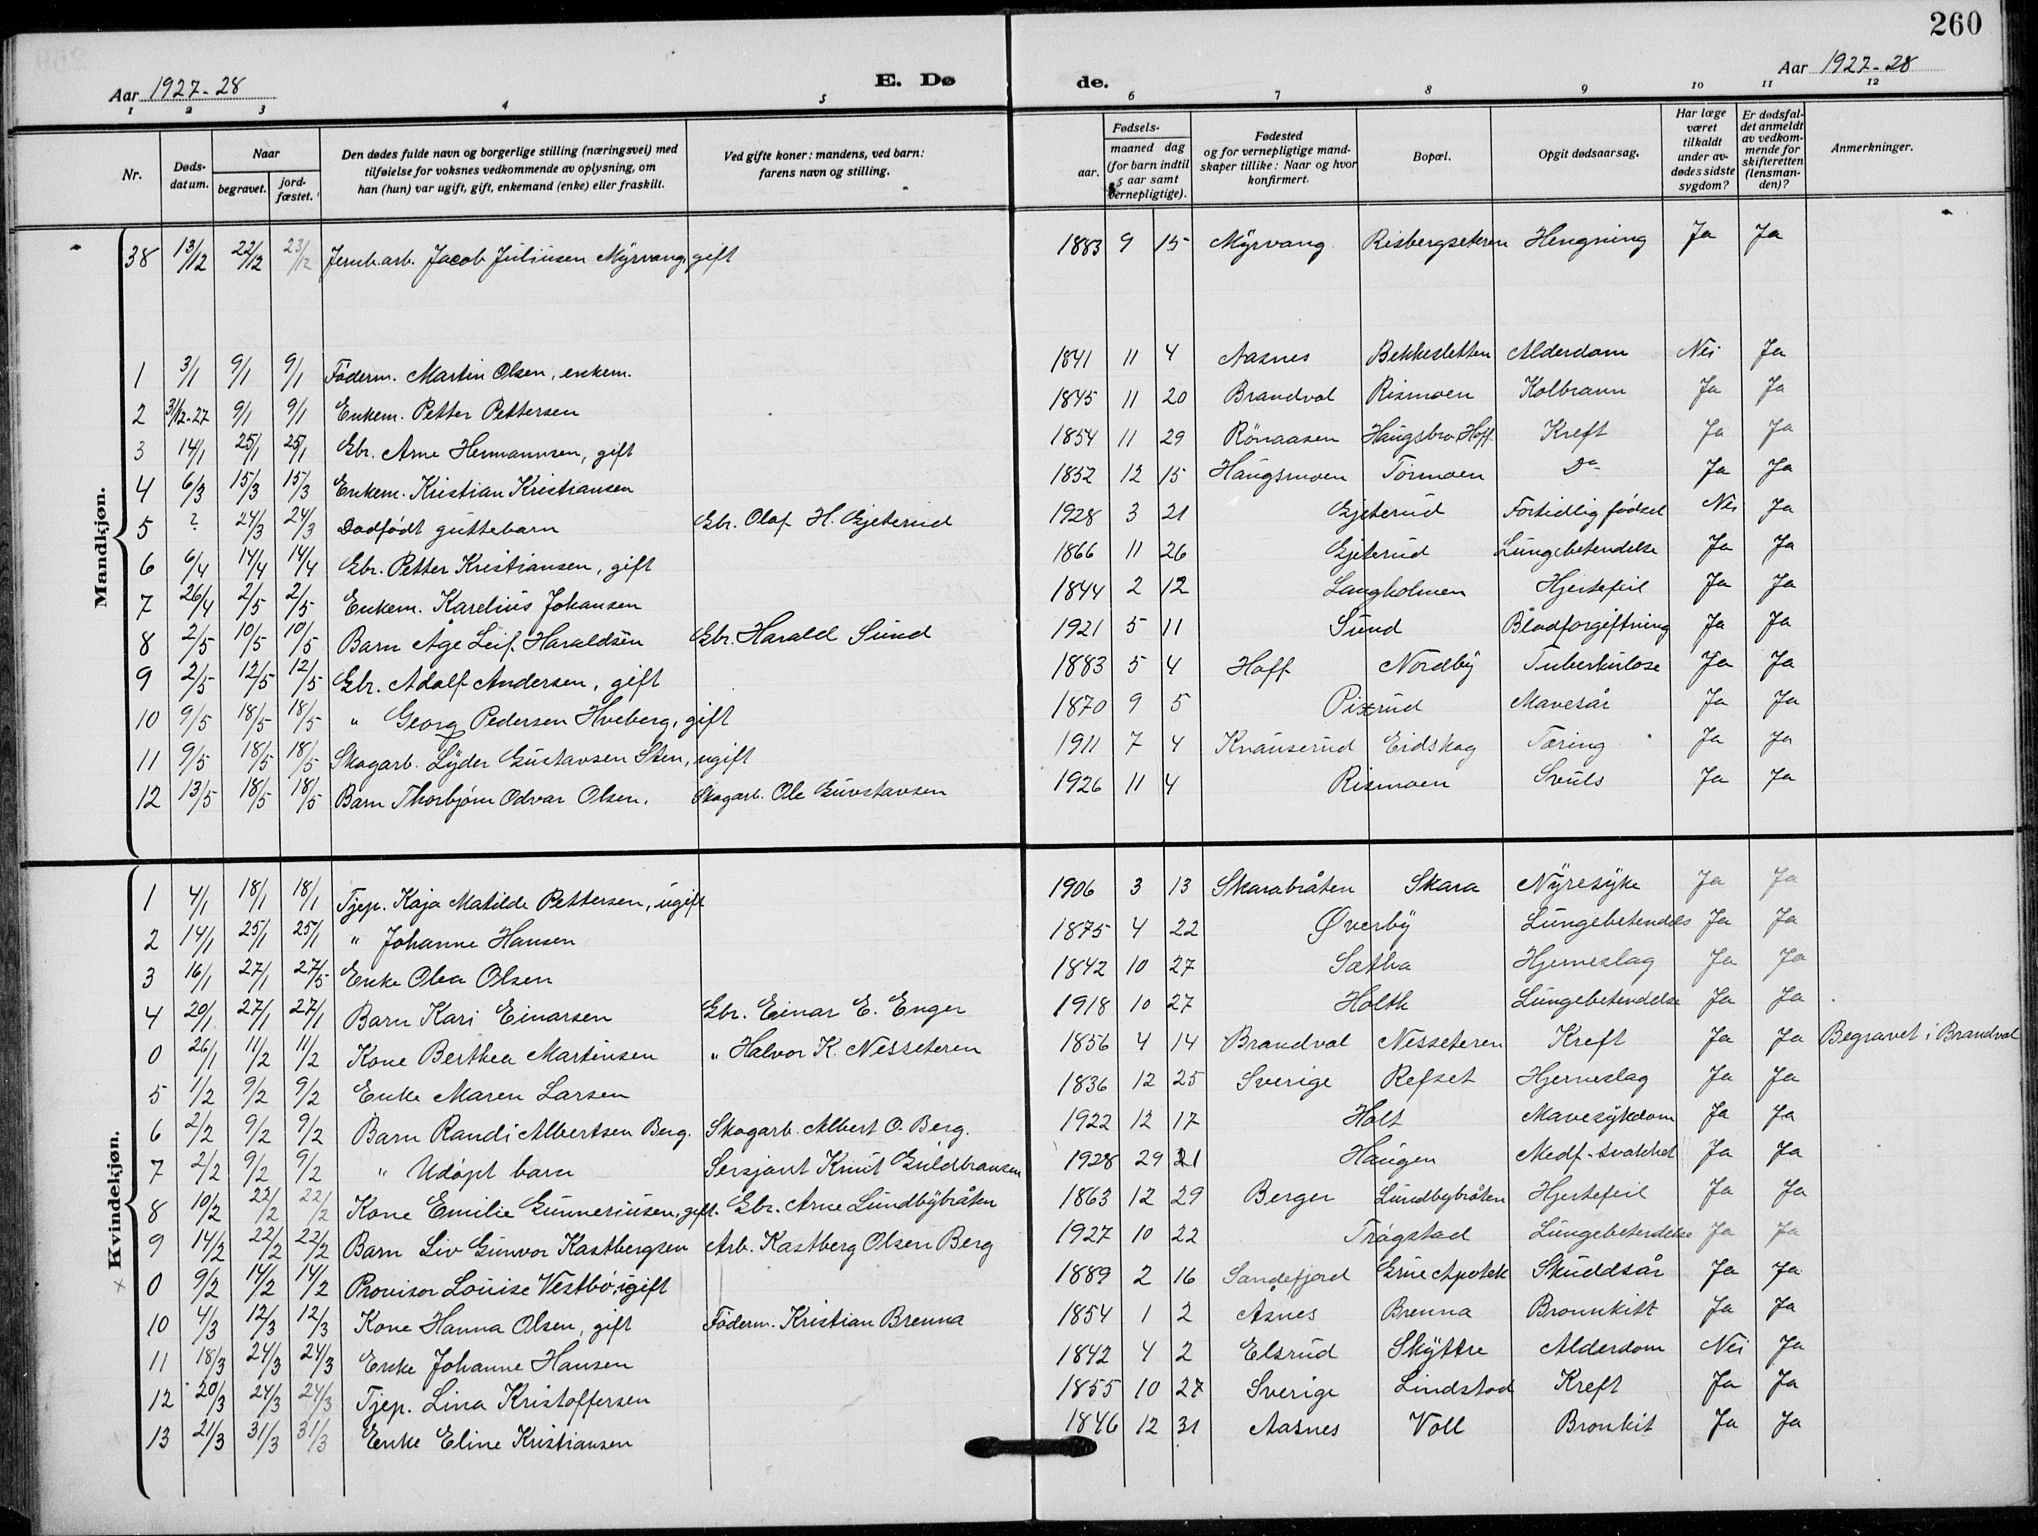 260
Aar 1927-28 E. Dø de. Aar 1927-28
1 2 3 4 5 6 7 8 9 10 11 12
Nr. Dødsdatum. Naar begravet. jordfæstet. Den dødes fulde navn og borgerlige stilling (næringsvei) med tilføielse for voksnes vedkommende av oplysning, om han (hun) var ugift, gift, enkemand (enke) eller fraskilt. Ved gifte koner: mandens, ved barn: farens navn og stilling. Fødsels- aar. maaned dag (for barn indtil 5 aar samt vernepligtige). Fødested og for vernepligtige mandskaper tillike: Naar og hvor konfirmert. Bopæl. Opgit dødsaarsag. Har læge været tilkaldt under avdødes sidste sygdom? Er dødsfaldet anmeldt av vedkommende for skifteretten (lensmanden)? Anmerkninger.
Mandkjøn.
38 13/12 22/12 23/12 Jernb.arb. Jacob Juliusen Myrvang, gift 1883 9 15 Myrvang Risbergseteren Hengning Ja Ja
1 3/1 9/1 9/1 Föderm. Martin Olsen, enkem. 1841 11 4 Aasnes Bekkesletten Alderdom Nei Ja
2 31/12-27 9/1 9/1 Enkem. Petter Pettersen 1845 11 20 Brandval Rismoen Kolbrann Ja Ja
3 14/1 25/1 25/1 Gbr. Arne Hermannsen, gift 1854 11 29 Rönaasen Haugsbro Hoff Kreft Ja Ja
4 6/3 15/3 15/3 Enkem. Kristian Kristiansen 1852 12 15 Haugsmoen Tormoen Do Ja Ja
5 ? 24/3 24/3 Dødfødt guttebarn Gbr. Olaf H. Gjeterud 1928 3 21 Gjeterud Fortidlig fødsel Nei Ja
6 6/4 14/4 14/4 Gbr. Petter Kristiansen, gift 1866 11 26 Gjeterud Lungebetendelse Ja Ja
7 26/4 2/5 2/5 Enkem. Karelius Johansen 1844 2 12 Langholmen Hjertefeil Ja Ja
8 2/5 10/5 10/5 Barn Åge Leif Haraldsen Gbr. Harald Sund 1921 5 11 Sund Blodforgiftning Ja Ja
9 2/5 12/5 12/5 Gbr. Adolf Andersen, gift 1883 5 4 Hoff Nordby Tuberkulose Ja Ja
10 9/5 18/5 18/5 " Georg Pedersen Hveberg, gift 1870 9 5 Pixrud Mavesår Ja Ja
11 9/5 18/5 18/5 Skogarb. Lyder Gustavsen Sten, ugift 1911 7 4 Knauserud Eidskog Tæring Ja Ja
12 13/5 18/5 18/5 Barn Thorbjørn Odvar Olsen. Skogarb. Ole Guvstavsen 1926 11 4 Rismoen Svuls Ja Ja
Kvindekjøn.
1 4/1 18/1 18/1 Tjep. Kaja Matilde Pettersen, ugift 1906 3 13 Skarabråten Skara Nyresyke Ja Ja
2 14/1 25/1 25/1 " Johanne Hansen 1875 4 22 Øverby Lungebetendels Ja Ja
3 16/1 27/1 27/5 Enke Olea Olsen 1842 10 27 Hjerneslag Ja Ja
4 20/1 27/1 27/1 Barn Kari Einarsen Gbr. Einar E. Enger 1918 10 27 Holth Lungebetendelse Ja Ja
0 26/1 11/2 11/2 Kone Berthea Martinsen " Halvor K. Nesseteren 1856 4 14 Brandval Nesseteren Kreft Ja Ja Begravet i Brandval
5 1/2 9/2 9/2 Enke Maren Larsen 1836 12 25 Sverige Refset Hjerneslag Ja Ja
6 2/2 9/2 9/2 Barn Randi Albertsen Berg. Skogarb. Albert O. Berg. 1922 12 17 Holt Mavesykdom Ja Ja
7 2/2 9/2 9/2 " Udøpt barn Sersjant Knut Guldbransen 1928 29 21 Haugen Medf. svakhet Ja Ja
8 10/2 22/2 22/2 Kone Emilie Gunneriusen, gift. Gbr. Arne Lundbybråten 1863 12 29 Berger Lundbybråten Hjertefeil Ja Ja
9 14/2 22/2 22/2 Barn Liv Gunvor Kastbergsen Arb. Kastberg Olsen Berg 1927 10 22 Trøgstad Lungebetendelse Ja Ja
× 0 9/2 14/2 14/2 Provisor Louise Vestbö, ugift 1889 2 16 Sandefjord Grue Apotek Skuddsår Ja Ja
10 4/3 12/3 12/3 Kone Hanna Olsen, gift Föderm. Kristian Brenna 1854 1 2 Åsnes Brenna Bronnkitt Ja Ja
11 18/3 24/3 24/3 Enke Johanne Hansen 1842 4 2 Elsrud Skyttre Alderdom Nei Ja
12 20/3 24/3 24/3 Tjep. Lina Kristoffersen 1855 10 27 Sverige Lindstad Kreft Ja Ja
13 21/3 31/3 31/3 Enke Eline Kristiansen 1846 12 31 Aasnes Voll Bronkit Ja Ja